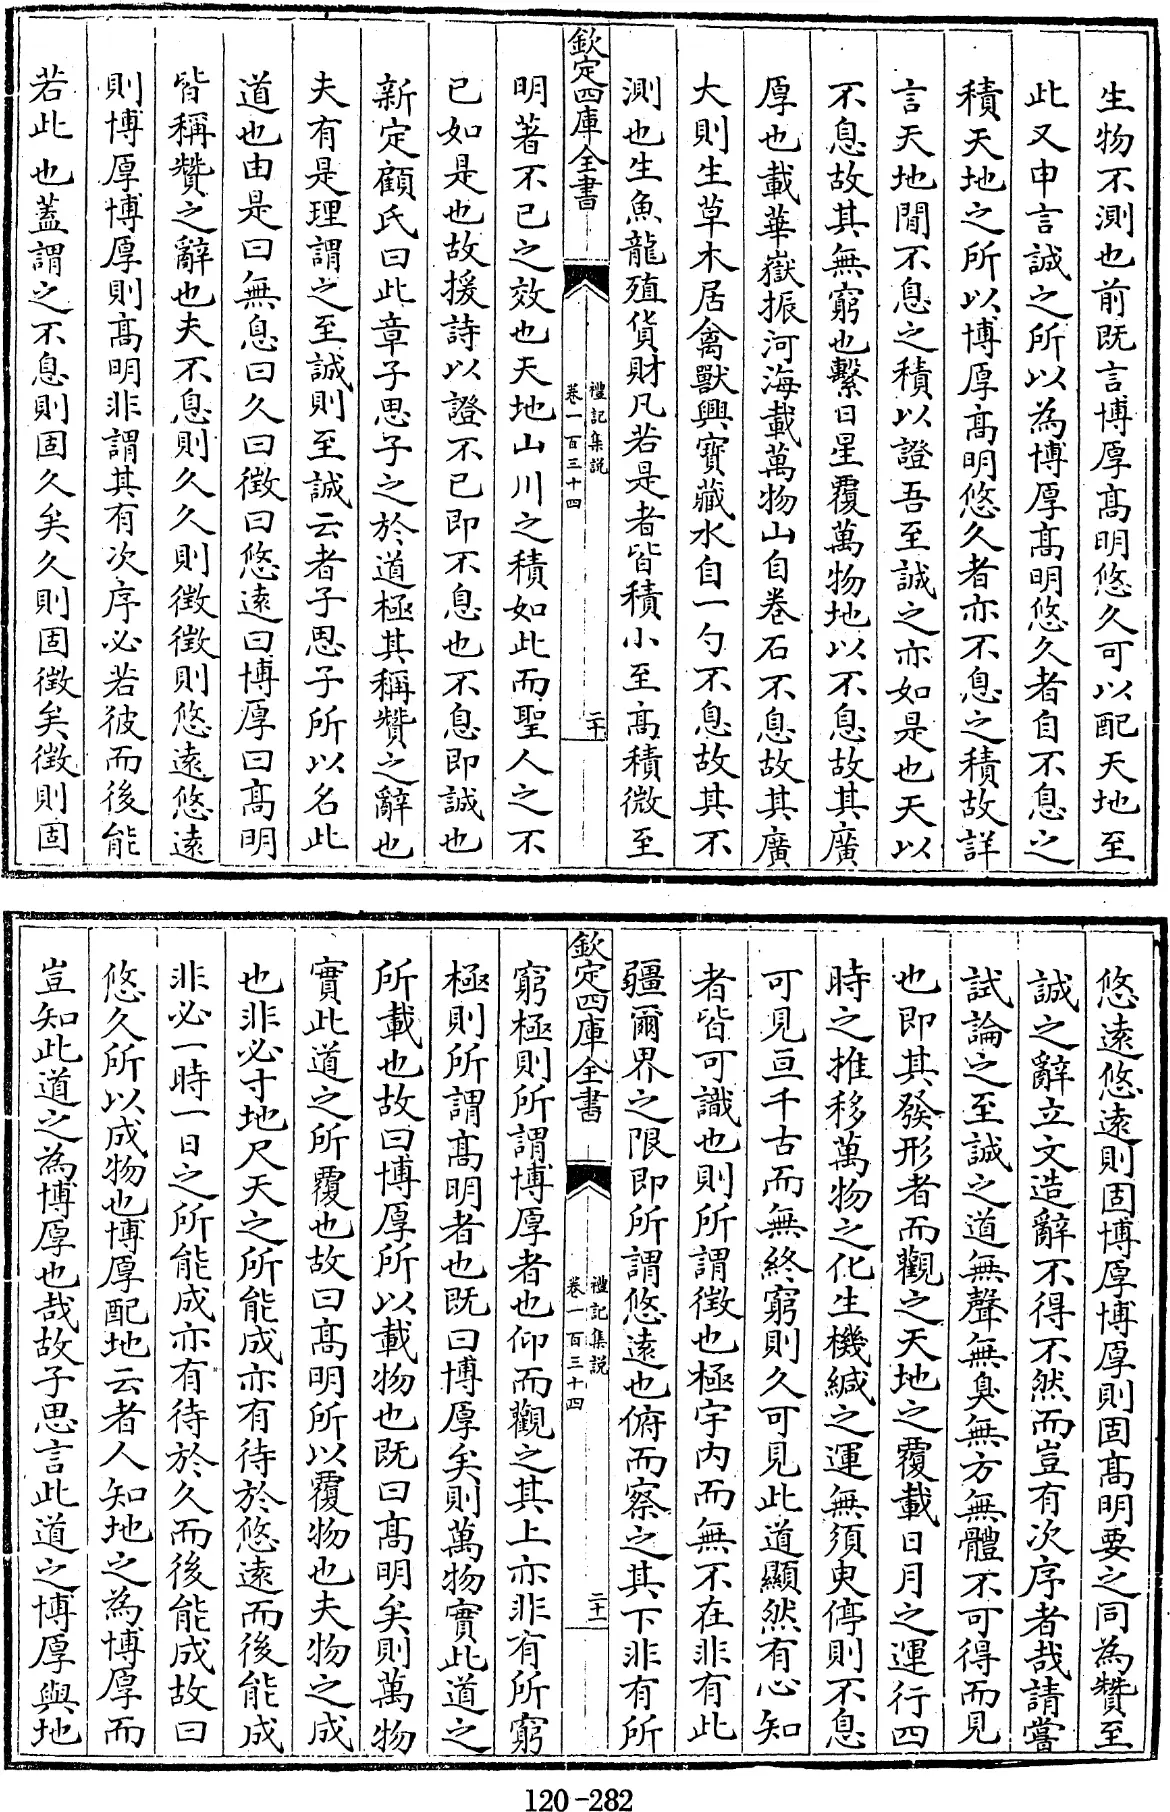 生物不測也前既言博厚髙明悠久可以配天地至
此又申言誠之所以為博厚髙明悠久者自不息之
積天地之所以博厚髙明悠久者亦不息之積故詳
言天地間不息之積以證吾至誠之亦如是也天以
不息故其無窮也繫日星覆萬物地以不息故其廣
厚也載華嶽振河海載萬物山自卷石不息故其廣
大則生草木居禽獸興寳藏水自一勺不息故其不
測也生魚龍殖貨財凡若是者皆積小至髙積微至
欽定四庫全書
禮記集説
卷一百三十四
二十
明著不已之效也天地山川之積如此而聖人之不
已如是也故援詩以證不已即不息也不息即誠也
新定顧氏曰此章子思子之於道極其稱贊之辭也
夫有是理謂之至誠則至誠云者子思子所以名此
道也由是曰無息曰久曰徵曰悠遠曰博厚曰髙明
皆稱贊之辭也夫不息則久久則徵徵則悠遠悠遠
則博厚博厚則髙明非謂其有次序必若彼而後能
若此也蓋謂之不息則固久矣久則固徵矣徵則固
悠遠悠遠則固博厚博厚則固髙明要之同為贊至
誠之辭立文造辭不得不然而豈有次序者哉請嘗
試論之至誠之道無聲無臭無方無體不可得而見
也即其發形者而觀之天地之覆載日月之運行四
時之推移萬物之化生機緘之運無須臾停則不息
可見亘千古而無終窮則久可見此道顯然有心知
者皆可識也則所謂徵也極宇内而無不在非有此
疆爾界之限即所謂悠遠也俯而察之其下非有所
欽定四庫全書
禮記集説
卷一百三十四
二十一
窮極則所謂博厚者也仰而觀之其上亦非有所窮
極則所謂髙明者也既曰博厚矣則萬物實此道之
所載也故曰博厚所以載物也既曰髙明矣則萬物
實此道之所覆也故曰髙明所以覆物也夫物之成
也非必寸地尺天之所能成亦有待於悠遠而後能成
非必一時一日之所能成亦有待於久而後能成故曰
悠久所以成物也博厚配地云者人知地之為博厚而
豈知此道之為博厚也哉故子思言此道之博厚與地
120-282